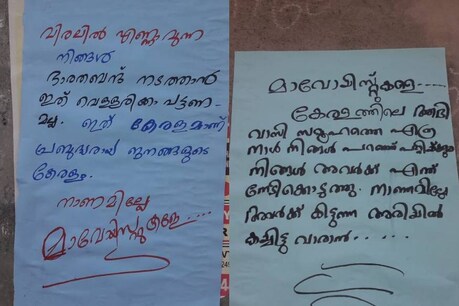 വിരലിൽ എണ്ണാവുന്ന
നിങ്ങൾ
ഭാരതബന്ദ് നടത്താൻ
ഇത് വെള്ളരിക്കാ പട്ടണ-
മല്ല. ഇത് കേരളമാണ്
പ്രബുദ്ധരായ ജനങ്ങളുടെ
കേരളം.
നാണമില്ലേ
മാവോയിസ്റ്റുകളേ....
മാവോയിസ്റ്റുകളെ......
കേരളത്തിലെ ആദി
വാസി സമൂഹത്തെ എത്ര
നാൾ നിങ്ങൾ പറഞ്ഞ്
നിങ്ങൾ അവർക്ക് എന്ത്
നേടികൊടുത്തു. നാണമില്ലേ
അവർക്ക് കിട്ടുന്ന അരിയിൽ
കയ്യിട്ടു വാരാൻ.....